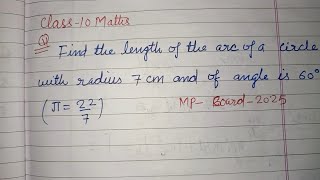 Class-10 Maths
Q Find the length of the arc of a circle
with radius 7 cm and of angle is 60°
(π = 22/7) MP- Board-2025